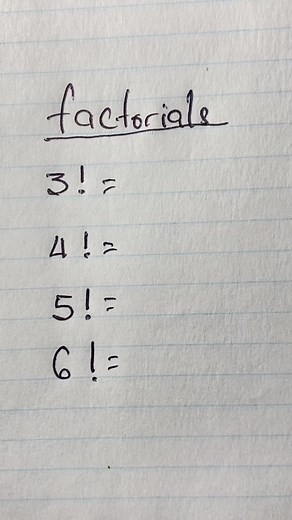 factorials
3! =
4! =
5! =
6! =